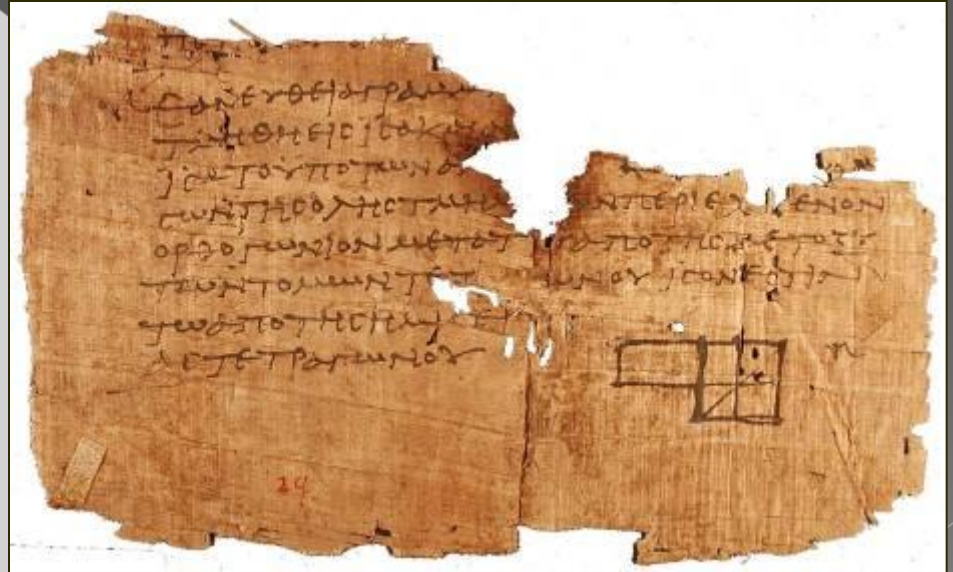 ΕΑΝ ΕΥΘΕΙΑ ΓΡΑΜΜ
ΤΜΗΘΗ ΕΙϹ ΙϹΑ Κ
ΙϹΑ ΤΟ ΥΠΟ ΤΩΝ ΑΝ
ϹΩΝ ΤΗϹ ΟΛΗϹ ΤΜΗΜ ΩΝ ΠΕΡΙΕΧ ΜΕΝΟΝ
ΟΡΘΟΓΩΝΙΟΝ ΜΕΤΑ ΤΟΥ ΑΠΟ ΤΗϹ ΜΕΤΟΞΥ
ΤΩΝ ΤΟΜΩΝ ΤΕΤ ΩΝΟΥ ΙϹΟΝ ΕϹΤΙΝ
ΤΩ ΑΠΟ ΤΗϹ ΗΜΙϹΕΙ
ΑϹ ΤΕΤΡΑΓΩΝΟΥ
29